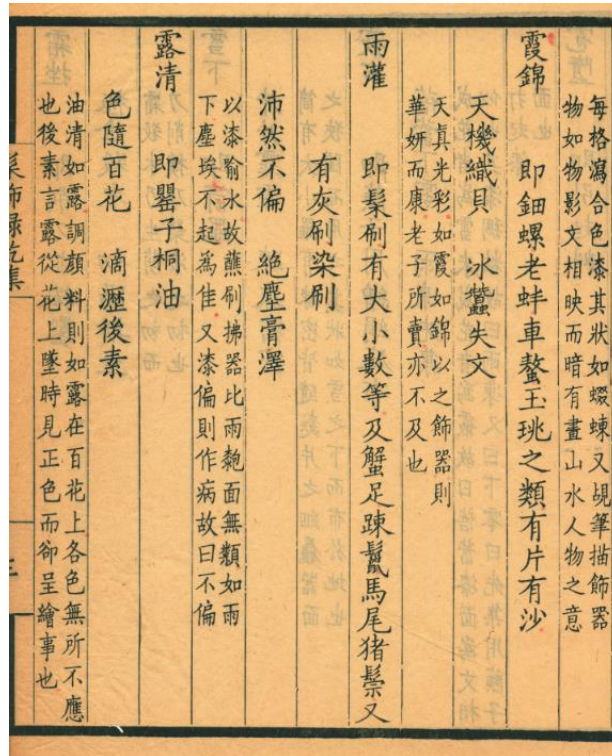 每格瀉合色漆其狀如蝃蝀又覘筆描飾器
物如物影文相映而暗有畫山水人物之意
霞錦　即鈿螺老蚌車螯玉珧之類有片有沙
天機織貝　冰蠶失文
天真光彩如霞如錦以之飾器則
華妍而康老子所賣亦不及也
雨灌　即髹刷有大小數等及蟹足踈鬣馬尾猪鬃又
有灰刷染刷
沛然不偏　絕塵膏澤
以漆喻水故蘸刷拂器比雨麭面無類如雨
下塵埃不起爲佳又漆偏則作病故曰不偏
露清　即罌子桐油
色隨百花　滴瀝後素
油清如露調顏料則如露在百花上各色無所不應
也後素言露從花上墜時見正色而卻呈繪事也
髹飾錄乾集